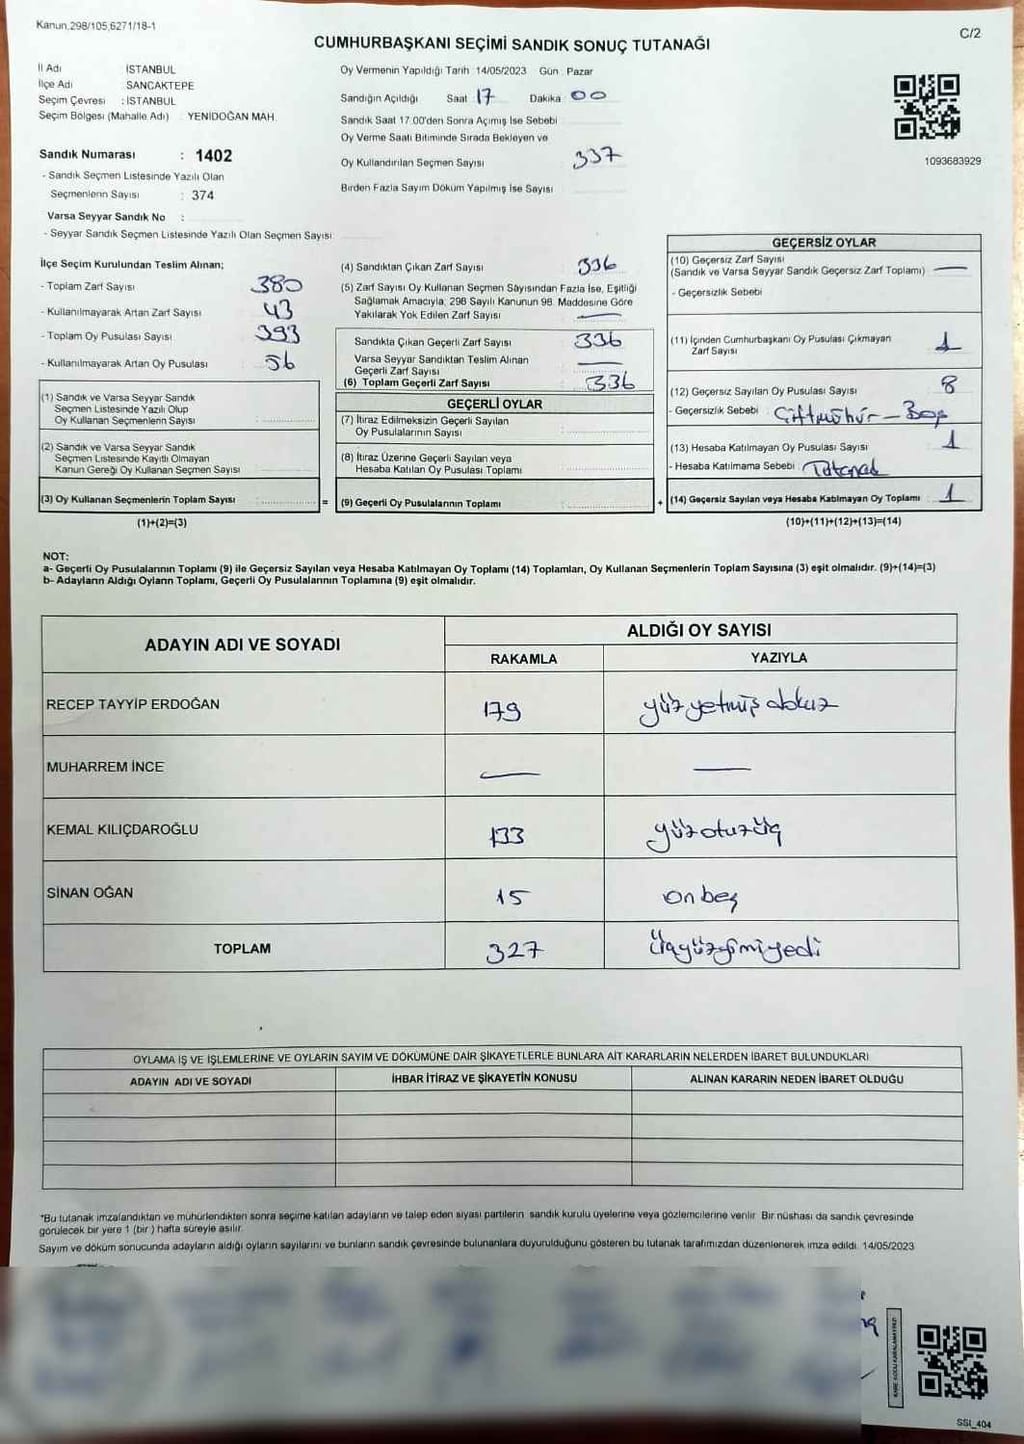 Kanun.298/105,6271/18-1
C/2
CUMHURBAŞKANI SEÇİMİ SANDIK SONUÇ TUTANAĞI
İl Adı İSTANBUL
İlçe Adı SANCAKTEPE
Seçim Çevresi : İSTANBUL
Seçim Bölgesi (Mahalle Adı) : YENİDOĞAN MAH.
Oy Vermenin Yapıldığı Tarih 14/05/2023 Gün : Pazar
Sandığın Açıldığı Saat 17 Dakika 00
Sandık Saat 17.00'den Sonra Açımış İse Sebebi
Oy Verme Saati Bitiminde Sırada Bekleyen ve
Oy Kullandırılan Seçmen Sayısı 337
Birden Fazla Sayım Döküm Yapılmış İse Sayısı
1093683929
Sandık Numarası : 1402
- Sandık Seçmen Listesinde Yazılı Olan
Seçmenlerin Sayısı : 374
Varsa Seyyar Sandık No :
- Seyyar Sandık Seçmen Listesinde Yazılı Olan Seçmen Sayısı
İlçe Seçim Kurulundan Teslim Alınan;
- Toplam Zarf Sayısı 380
- Kullanılmayarak Artan Zarf Sayısı 43
- Toplam Oy Pusulası Sayısı 393
- Kullanılmayarak Artan Oy Pusulası 56
(1) Sandık ve Varsa Seyyar Sandık
Seçmen Listesinde Yazılı Olup
Oy Kullanan Seçmenlerin Sayısı
(2) Sandık ve Varsa Seyyar Sandık
Seçmen Listesinde Kayıtlı Olmayan
Kanun Gereği Oy Kullanan Seçmen Sayısı
(3) Oy Kullanan Seçmenlerin Toplam Sayısı =
(1)+(2)=(3)
(4) Sandıktan Çıkan Zarf Sayısı 336
(5) Zarf Sayısı Oy Kullanan Seçmen Sayısından Fazla İse, Eşitliği
Sağlamak Amacıyla, 298 Sayılı Kanunun 98. Maddesine Göre
Yakılarak Yok Edilen Zarf Sayısı —
Sandıkta Çıkan Geçerli Zarf Sayısı 336
Varsa Seyyar Sandıktan Teslim Alınan
Geçerli Zarf Sayısı —
(6) Toplam Geçerli Zarf Sayısı 336
GEÇERLİ OYLAR
(7) İtiraz Edilmeksizin Geçerli Sayılan
Oy Pusulalarının Sayısı
(8) İtiraz Üzerine Geçerli Sayılan veya
Hesaba Katılan Oy Pusulası Toplamı
(9) Geçerli Oy Pusulalarının Toplamı +
GEÇERSİZ OYLAR
(10) Geçersiz Zarf Sayısı
(Sandık ve Varsa Seyyar Sandık Geçersiz Zarf Toplamı) —
- Geçersizlik Sebebi
(11) İçinden Cumhurbaşkanı Oy Pusulası Çıkmayan
Zarf Sayısı 1
(12) Geçersiz Sayılan Oy Pusulası Sayısı 8
- Geçersizlik Sebebi : Çiftmühür - Boş
(13) Hesaba Katılmayan Oy Pusulası Sayısı 1
- Hesaba Katılmama Sebebi : Tutanak
(14) Geçersiz Sayılan veya Hesaba Katılmayan Oy Toplamı 1
(10)+(11)+(12)+(13)=(14)
NOT:
a- Geçerli Oy Pusulalarının Toplamı (9) ile Geçersiz Sayılan veya Hesaba Katılmayan Oy Toplamı (14) Toplamları, Oy Kullanan Seçmenlerin Toplam Sayısına (3) eşit olmalıdır. (9)+(14)=(3)
b- Adayların Aldığı Oyların Toplamı, Geçerli Oy Pusulalarının Toplamına (9) eşit olmalıdır.
ADAYIN ADI VE SOYADI
ALDIĞI OY SAYISI
RAKAMLA YAZIYLA
RECEP TAYYİP ERDOĞAN 179 yüz yetmiş dokuz
MUHARREM İNCE — —
KEMAL KILIÇDAROĞLU 133 yüzotuzüç
SİNAN OĞAN 15 on beş
TOPLAM 327 Üçyüzyirmiyedi
OYLAMA İŞ VE İŞLEMLERİNE VE OYLARIN SAYIM VE DÖKÜMÜNE DAİR ŞİKAYETLERLE BUNLARA AİT KARARLARIN NELERDEN İBARET BULUNDUKLARI
ADAYIN ADI VE SOYADI İHBAR İTİRAZ VE ŞİKAYETİN KONUSU ALINAN KARARIN NEDEN İBARET OLDUĞU
*Bu tutanak imzalandıktan ve mühürlendikten sonra seçime katılan adayların ve talep eden siyasi partilerin sandık kurulu üyelerine veya gözlemcilerine verilir. Bir nüshası da sandık çevresinde
görülecek bir yere 1 (bir ) hafta süreyle asılır.
Sayım ve döküm sonucunda adayların aldığı oyların sayılarını ve bunların sandık çevresinde bulunanlara duyurulduğunu gösteren bu tutanak tarafımızdan düzenlenerek imza edildi. 14/05/2023
SSI_404